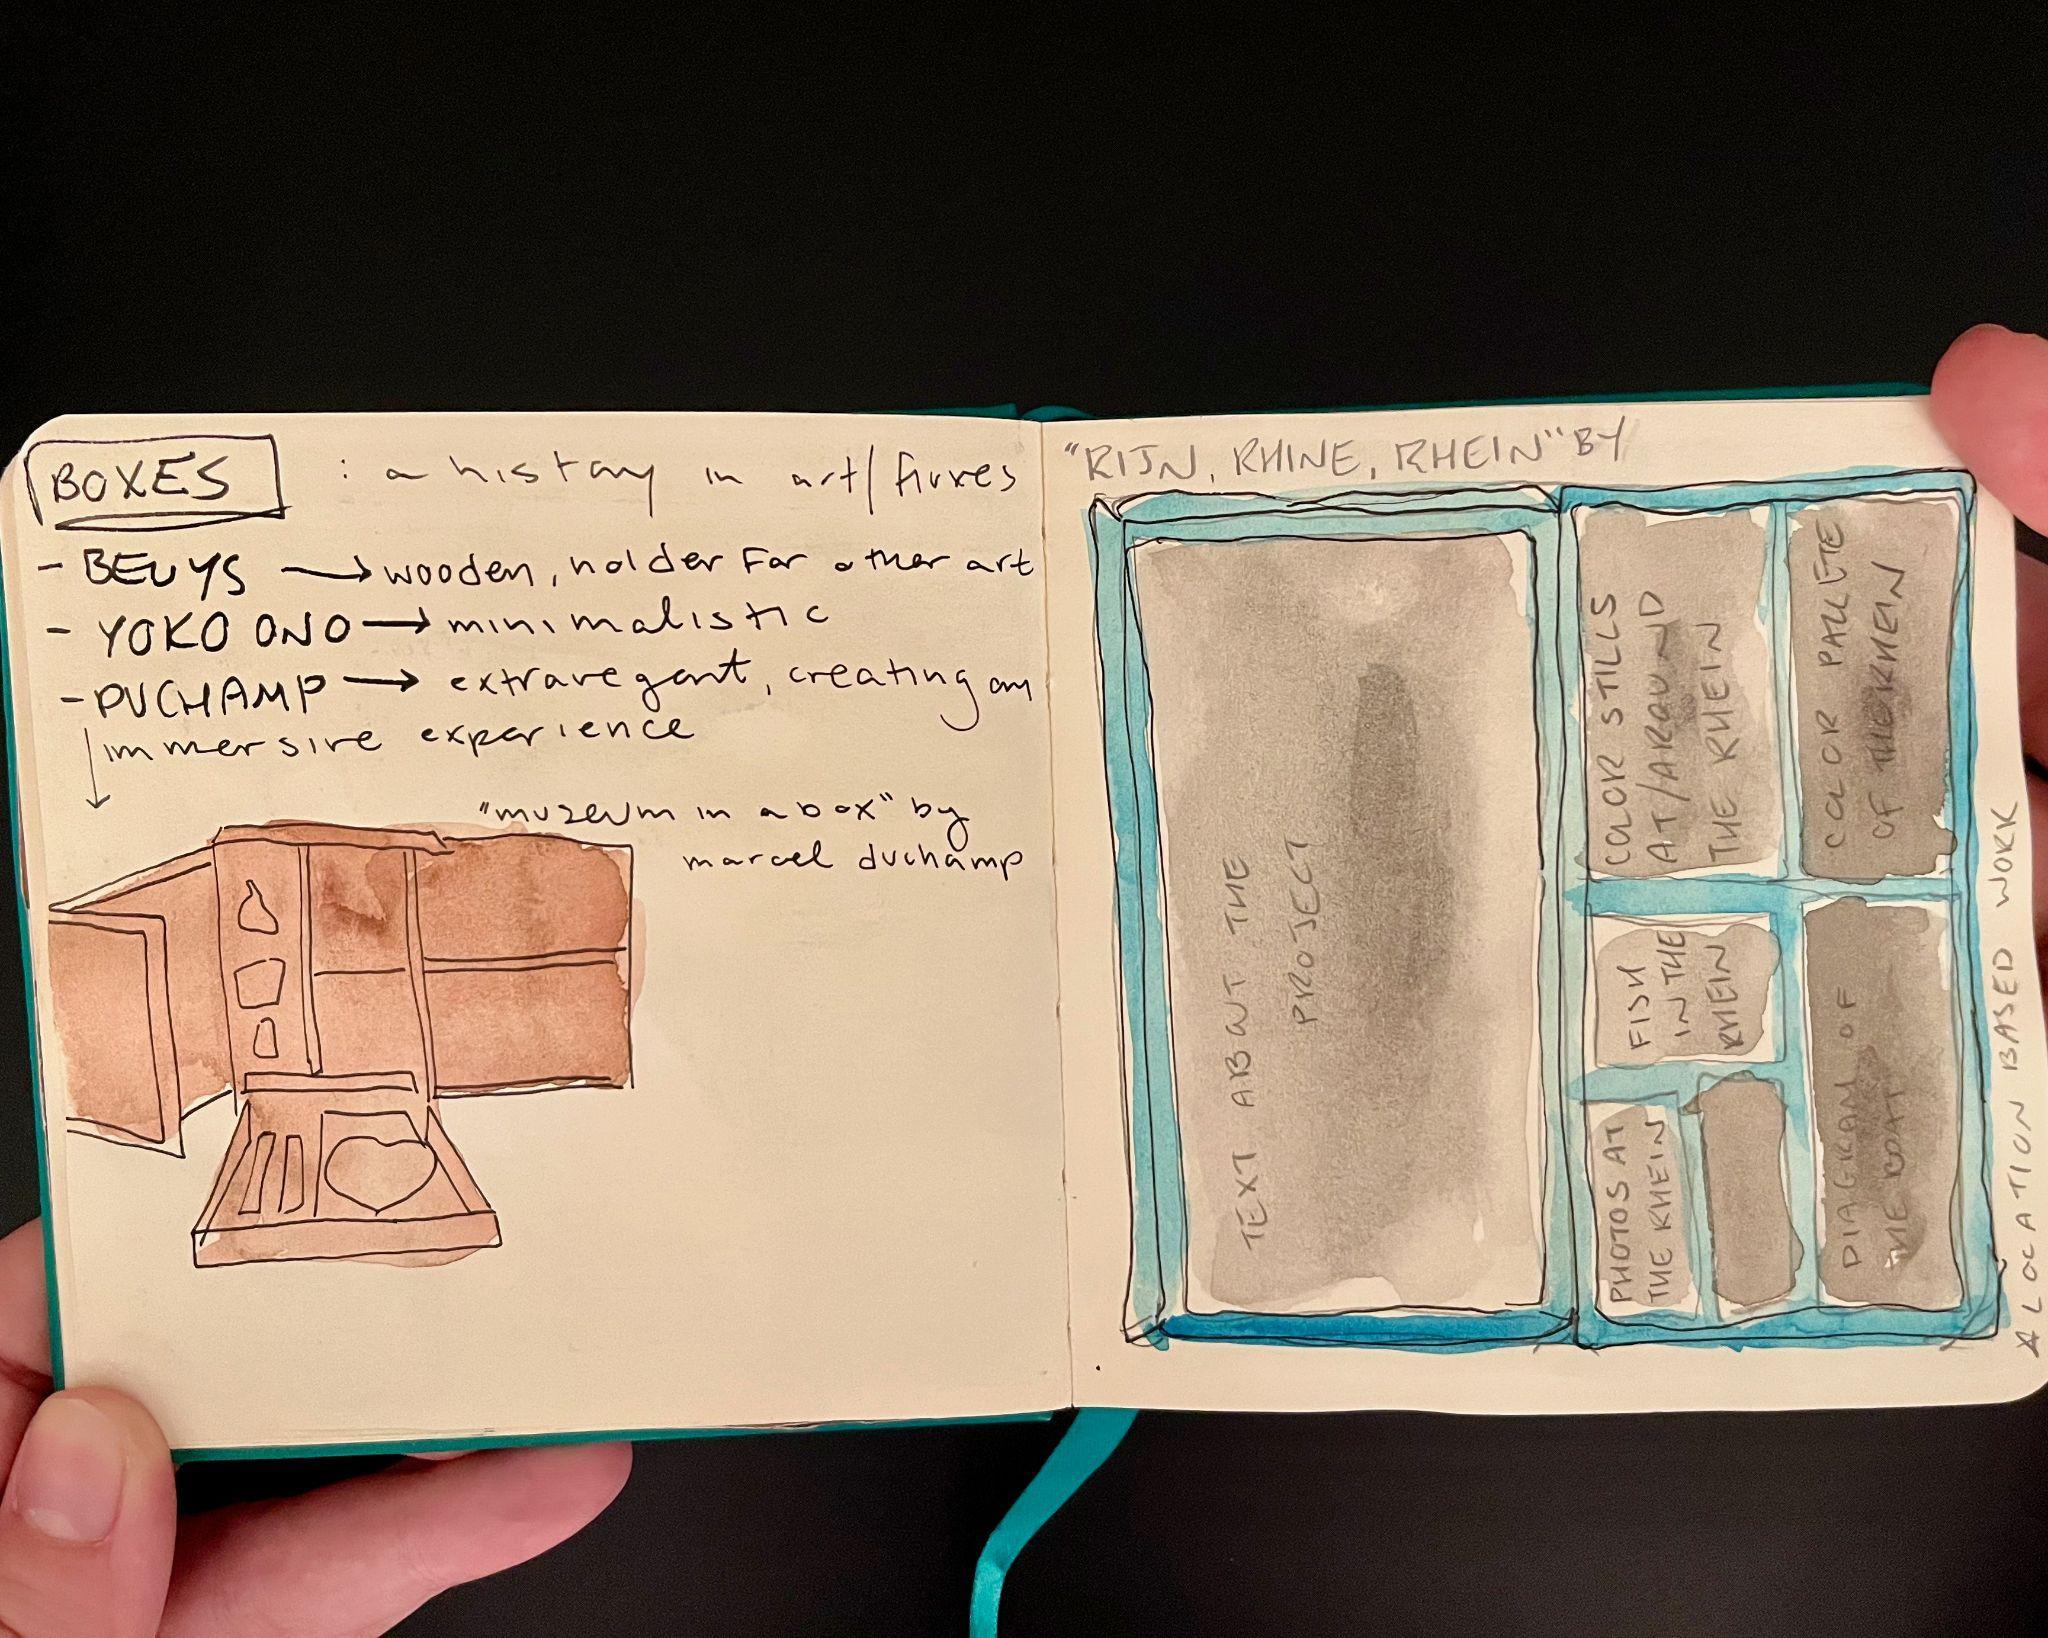 BOXES : a history in art/fluxes
- BEUYS → wooden, holder For other art
- YOKO ONO → minimalistic
- DUCHAMP → extravegant, creating an
immersive experience
"muzeum in a box" by
marcel duchamp
"RIJN, RHINE, RHEIN" BY
TEXT ABOUT THE
PROJECT
COLOR STILLS
AT/AROUND
THE RHEIN
COLOR PALLETE
OF THE RHEIN
FISH
IN THE
RHEIN
PHOTOS AT
THE RHEIN
DIAGRAM OF
THE BOAT
* LOCATION BASED WORK